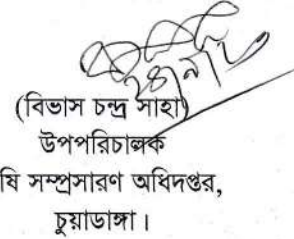 (বিভাস চন্দ্র সাহা)
উপপরিচালক
ষি সম্প্রসারণ অধিদপ্তর,
চুয়াডাঙ্গা।